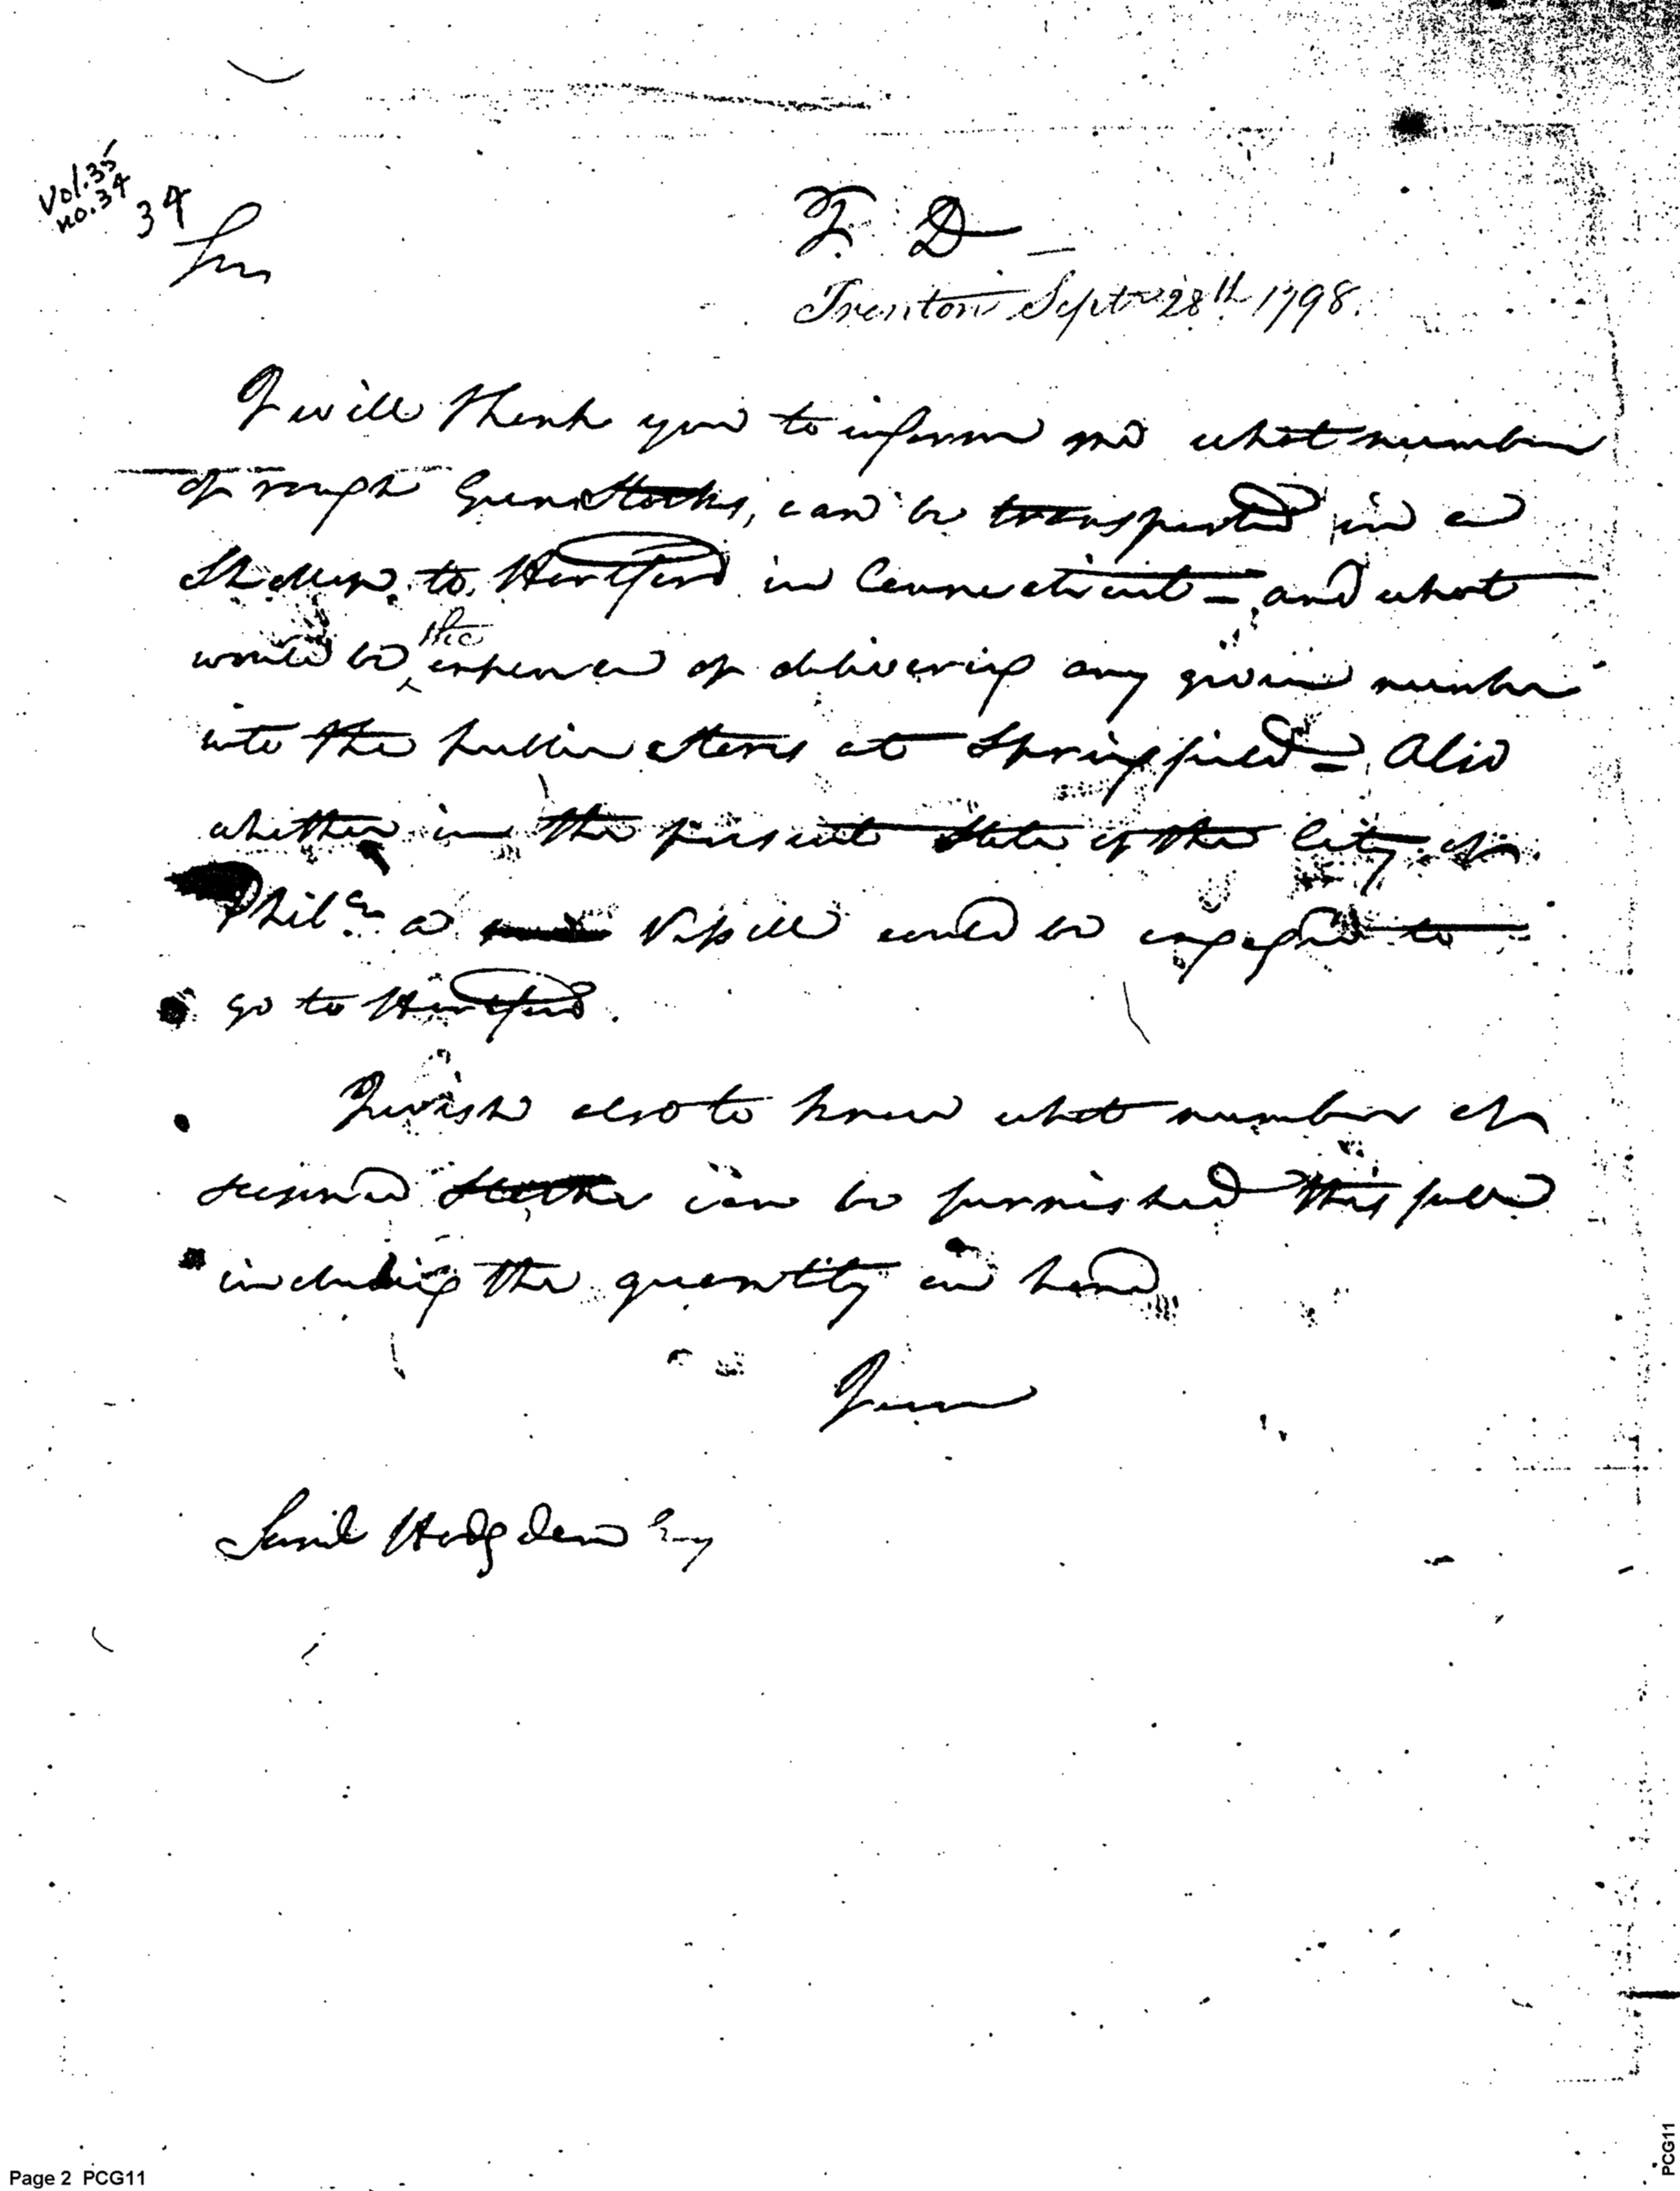 Vol. 35
no. 34
34
T. D
Sir
Trenton Septr 28th 1798.
I will thank you to inform me what number
of rough Gun Stocks, can be transported in a
Shallop to Hartford in Connecticut – and what
would be the expence of delivering any given number
into the public Stores at Springfield – Also
whether in the present State of the City of
Phila. a Vessell could be engaged to
go to Hartford.
I wish also to know what number of
seasoned Stocks can be furnished this fall
including the quantity on hand
I am
Saml Hodgdon Esq
Page 2 PCG11
PCG11